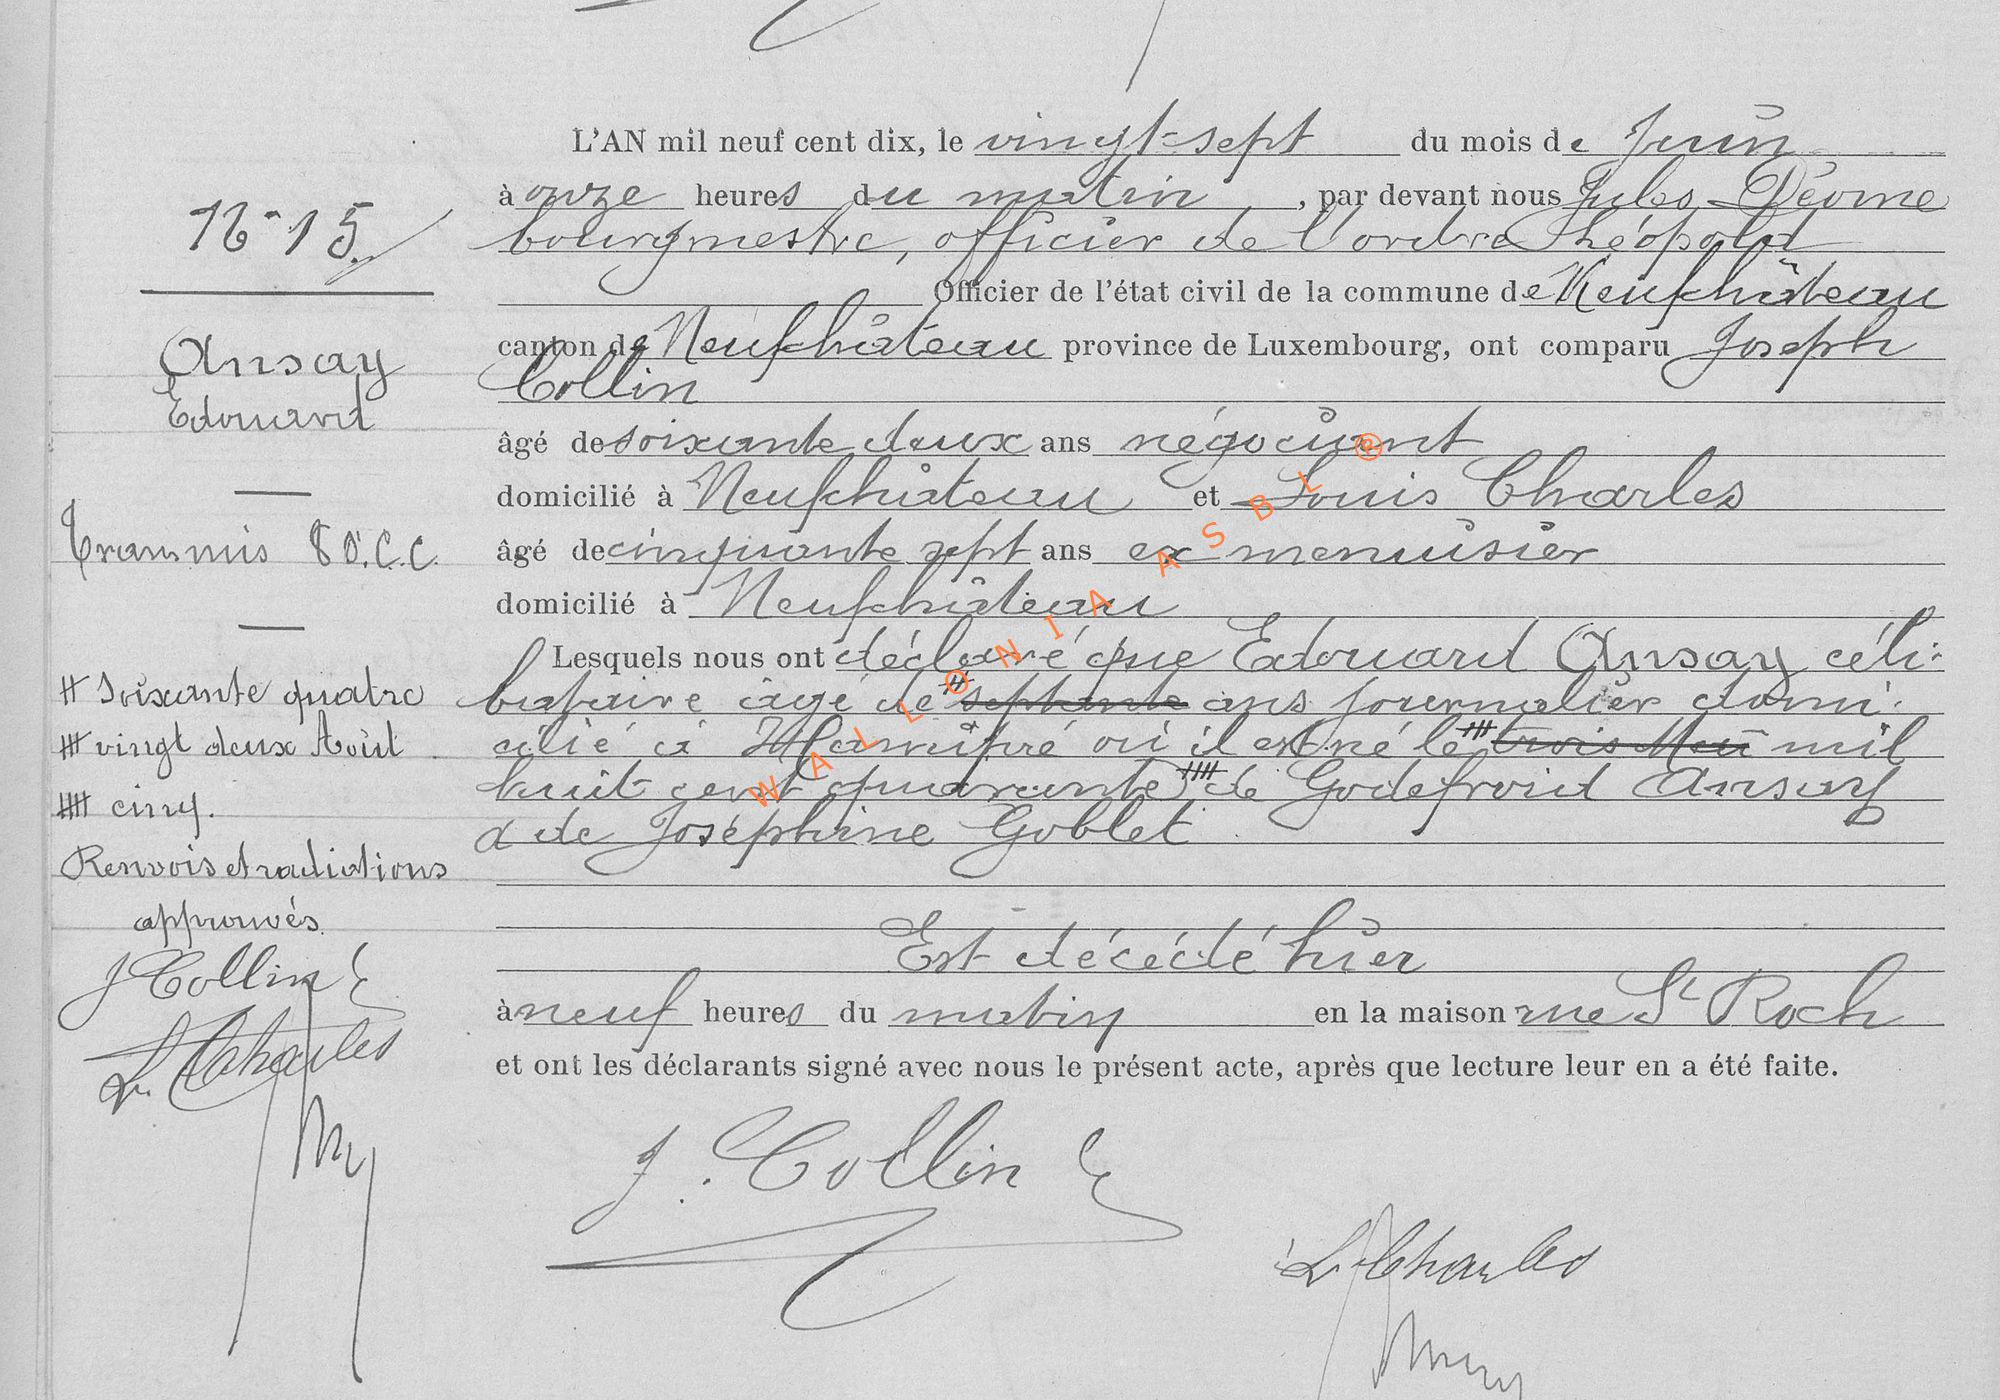 N° 15
Ansay
Edouard
Transmis 80.C.C.
# Soixante quatre
# vingt deux Août
# cinq.
Renvois et radiations
approuvés.
J Collin
L. Charles
L'AN mil neuf cent dix, le vingt-sept du mois de Juin
à onze heures du matin, par devant nous Jules
bourgmestre, officier de l'ordre Léopold
Officier de l'état civil de la commune de Neufchâteau
canton de Neufchâteau province de Luxembourg, ont comparu Joseph
Collin
âgé de soixante deux ans négociant
domicilié à Neufchâteau et Louis Charles
âgé de cinquante sept ans ex menuisier
domicilié à Neufchâteau
Lesquels nous ont déclaré que Edouard Ansay céli-
bataire âgé de # septante ans journalier domi-
cilié à Hamipré où il est né le # trois Mai mil
huit cent quarante # de Godefroid Ansay
& de Joséphine Goblet
Est décédé hier
à neuf heures du matin en la maison rue St Roch
et ont les déclarants signé avec nous le présent acte, après que lecture leur en a été faite.
J. Collin
L. Charles
WALLONIA ASBL ®